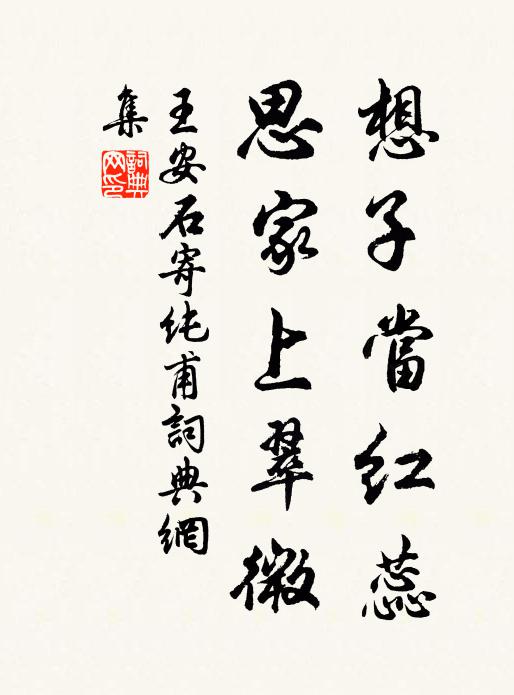 想子當紅蕊
思家上翠微
王安石寄純甫詞典網
集
詞典
网印